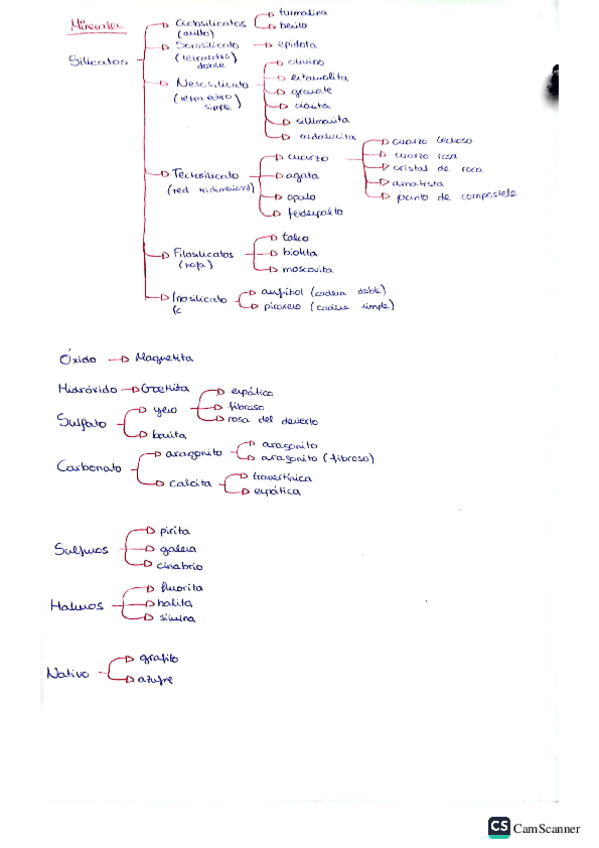 Minerales
Silicatos
Ciclosilicatos
(anillo)
turmalina
berilo
Sorosilicato
(tetraedro
doble
epidota
Nesosilicato
(tetraedro
simple)
olivino
estaurolita
granate
cianita
sillimanita
andalucita
Tectosilicato
(red tridimensional)
cuarzo
cuarzo lechoso
cuarzo rosa
cristal de roca
amatista
jacinto de compostela
agata
opalo
feldespato
Filosilicatos
(hoja)
talco
biotita
moscovita
Inosilicato
(c
anfibol (cadena doble)
piroxeno (cadena simple)
Óxido
Magnetita
Hidróxido
Goethita
Sulfato
yeso
espático
fibroso
rosa del desierto
barita
Carbonato
aragonito
aragonito
aragonito (fibroso)
calcita
travertínica
espática
Sulfuros
pirita
galena
cinabrio
Haluros
fluorita
halita
silvina
Nativo
grafito
azufre
CS CamScanner